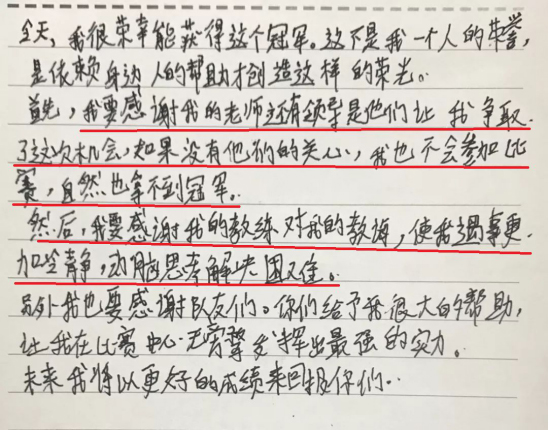 今天，我很荣幸能获得这个冠军。这不是我一个人的荣誉，
是依赖身边人的帮助才创造这样的荣光。
首先，我要感谢我的老师还有领导是他们让我争取
了这次机会，如果没有他们的关心，我也不会参加比
赛，自然也拿不到冠军。
然后，我要感谢我的教练对我的教诲，使我遇事更
加坐静，动脑思考解决困难。
另外我也要感谢队友们。你们给予我很大的帮助，
让我在比赛中心无旁骛发挥出最强的实力。
未来我将以更好的成绩来回报你们。